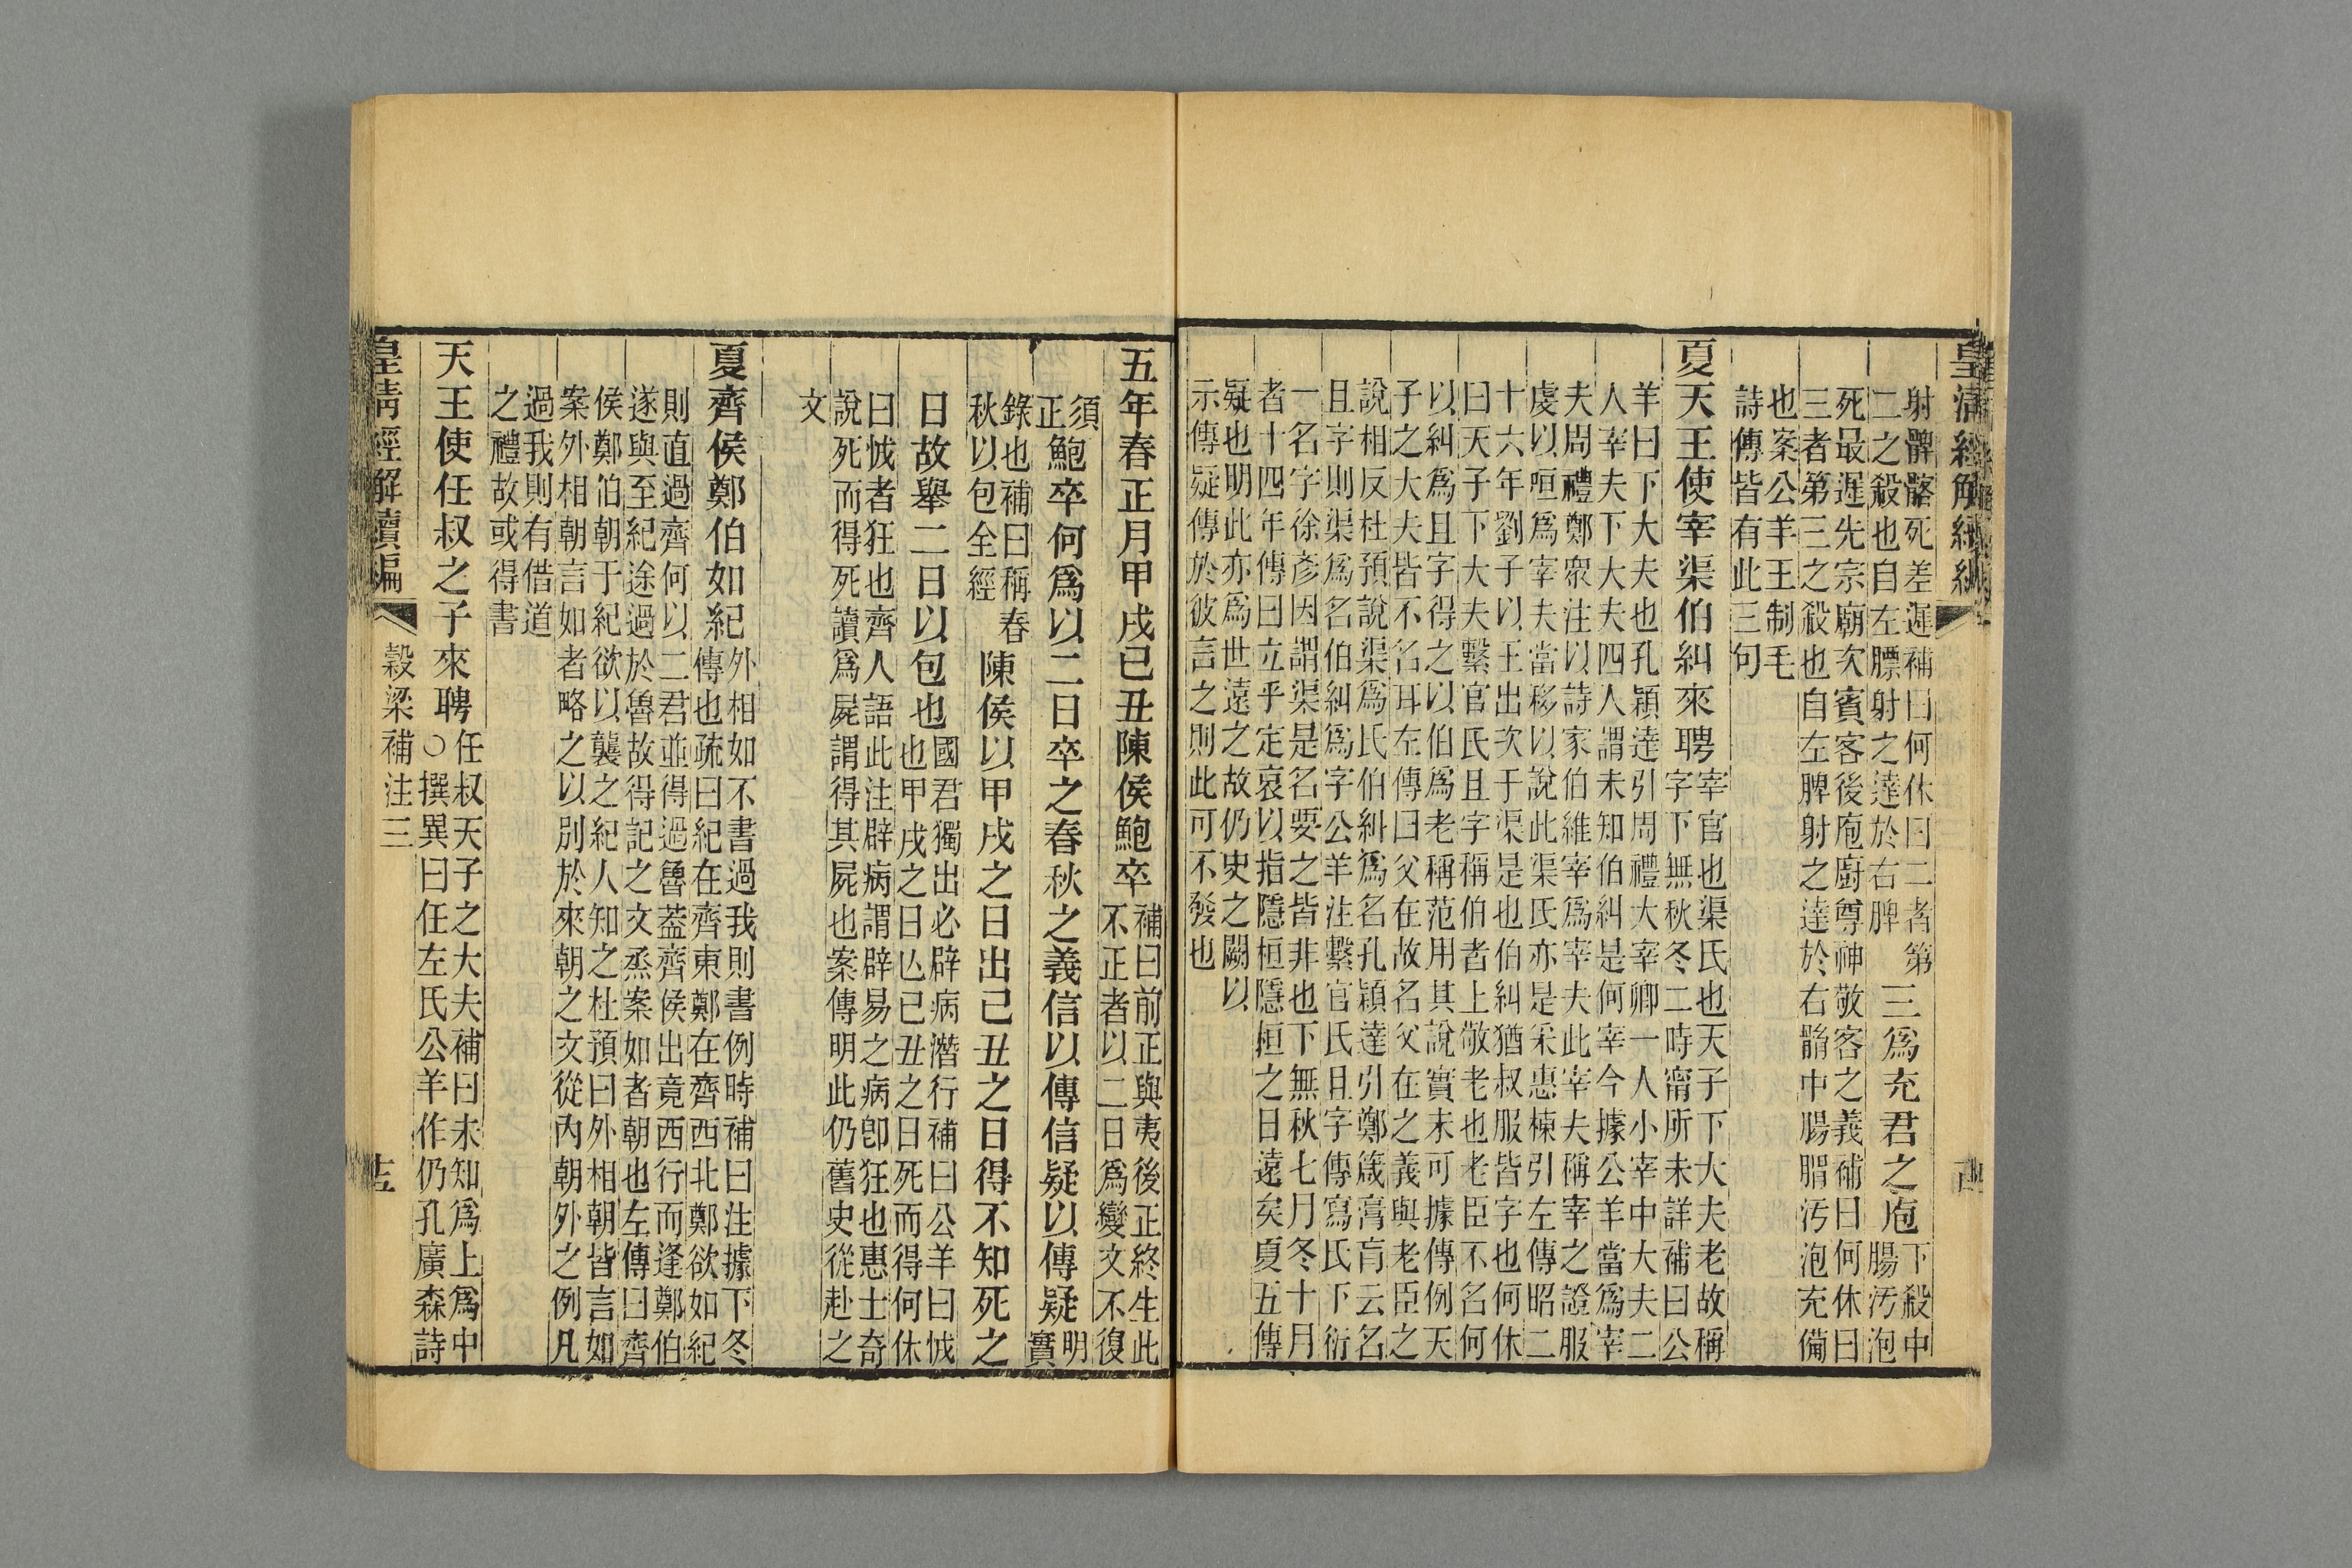 皇淸經解續編
射髀髂死差遲補曰何休曰二者第三爲充君之庖下殺中
二之殺也自左膘射之達於右脾腸汚泡
死最遲先宗廟次賓客後庖廚尊神敬客之義補曰何休曰
三者第三之殺也自左脾射之達於右䯚中腸胃汚泡充備
也案公羊王制毛
詩傳皆有此三句
夏天王使宰渠伯糾來聘宰官也渠氏也天子下大夫老故稱
字下無秋冬二時甯所未詳補曰公
羊曰下大夫也孔穎達引周禮大宰卿一人小宰中大夫二
人宰夫下大夫四人謂未知伯糾是何宰今據公羊當爲宰
夫周禮鄭衆注以詩家伯維宰爲宰夫此宰夫稱宰之證服
虔以咺爲宰夫當移以說此渠氏亦是采惠棟引左傳昭二
十六年劉子以王出次于渠是也伯糾猶叔服皆字也何休
曰天子下大夫繫官氏且字稱伯者上敬老也老臣不名何
以糾爲且字得之以伯爲老稱范用其說實未可據傳例天
子之大夫皆不名耳左傳曰父在故名父在之義與老臣之
說相反杜預說渠爲氏伯糾爲名孔穎達引鄭箴膏肓云名
且字則渠爲名伯糾爲字公羊注繫官氏且字傳寫氏下衍
一名字徐彥因謂渠是名要之皆非也下無秋七月冬十月
者十四年傳曰立乎定哀以指隱桓隱桓之日遠矣夏五傳
疑也明此亦爲世遠之故仍史之闕以
示傳疑傳於彼言之則此可不發也
五年春正月甲戌己丑陳侯鮑卒補曰前正與夷後正終生此
不正者以二日爲變文不復
須
正鮑卒何爲以二日卒之春秋之義信以傳信疑以傳疑明
實
錄也補曰稱春
秋以包全經陳侯以甲戌之日出己丑之日得不知死之
日故舉二日以包也國君獨出必辟病潛行補曰公羊曰怴
也甲戌之日亾己丑之日死而得何休
曰怴者狂也齊人語此注辟病謂辟易之病卽狂也惠士奇
說死而得死讀爲屍謂得其屍也案傳明此仍舊史從赴之
文
夏齊侯鄭伯如紀外相如不書過我則書例時補曰注據下冬
傳也疏曰紀在齊東鄭在齊西北鄭欲如紀
則直過齊何以二君並得過魯葢齊侯出竟西行而逢鄭伯
遂與至紀途過於魯故得記之文烝案如者朝也左傳曰齊
侯鄭伯朝于紀欲以襲之紀人知之杜預曰外相朝皆言如
案外相朝言如者略之以別於來朝之文從內朝外之例凡
過我則有借道
之禮故或得書
天王使任叔之子來聘任叔天子之大夫補曰未知爲上爲中
○撰異曰任左氏公羊作仍孔廣森詩
皇淸經解續編
穀梁補注三